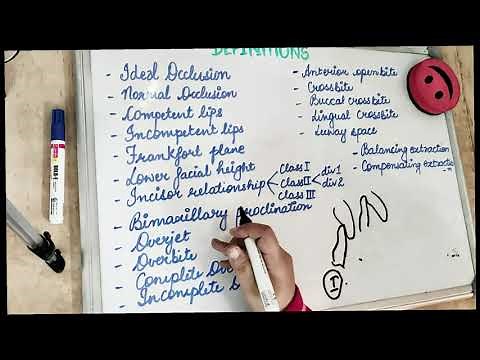 DEFINITIONS
- Ideal Occlusion
- Normal Occlusion
- Competent lips
- Incompetent lips
- Frankfort plane
- Lower facial height
- Incisor relationship
Class I
Class II
div 1
div 2
Class III
- Bimaxillary proclination
- Overjet
- Overbite
- Complete
- Incomplete
- Anterior openbite
- Crossbite
- Buccal crossbite
- Lingual Crossbite
- Leeway space
- Balancing extraction
- Compensating extractio
I